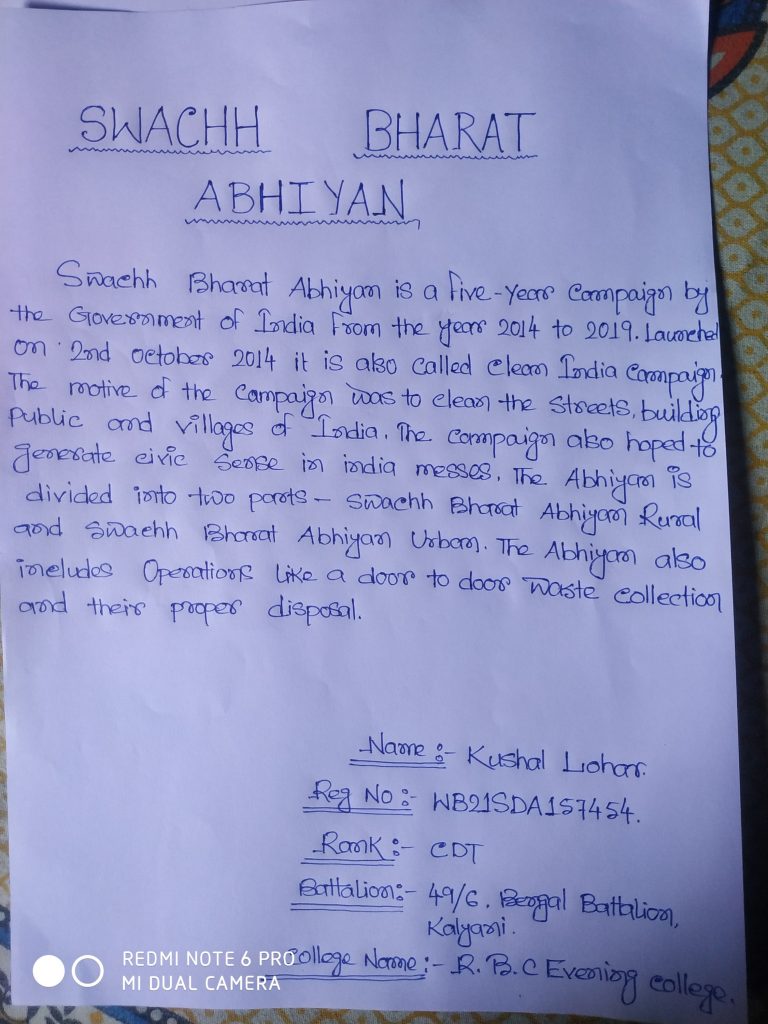 SWACHH BHARAT
ABHIYAN
Swachh Bharat Abhiyan is a five-year Campaign by
the Government of India from the year 2014 to 2019. Launched
on 2nd october 2014 it is also called clean India Campaign.
The motive of the campaign was to clean the streets, building
Public and villages of India. The campaign also hoped to
generate civic sense in india messes. The Abhiyan is
divided into two parts - Swachh Bharat Abhiyan Rural
and Swachh Bharat Abhiyan Urban. The Abhiyan also
includes Operations like a door to door waste collection
and their proper disposal.
Name :- Kushal Lohar.
Reg No :- WB21SDA157454.
Rank :- CDT
Battalion :- 49/6. Bengal Battalion,
Kalyani.
College Name :- R. B. C Evening college.
REDMI NOTE 6 PRO
MI DUAL CAMERA